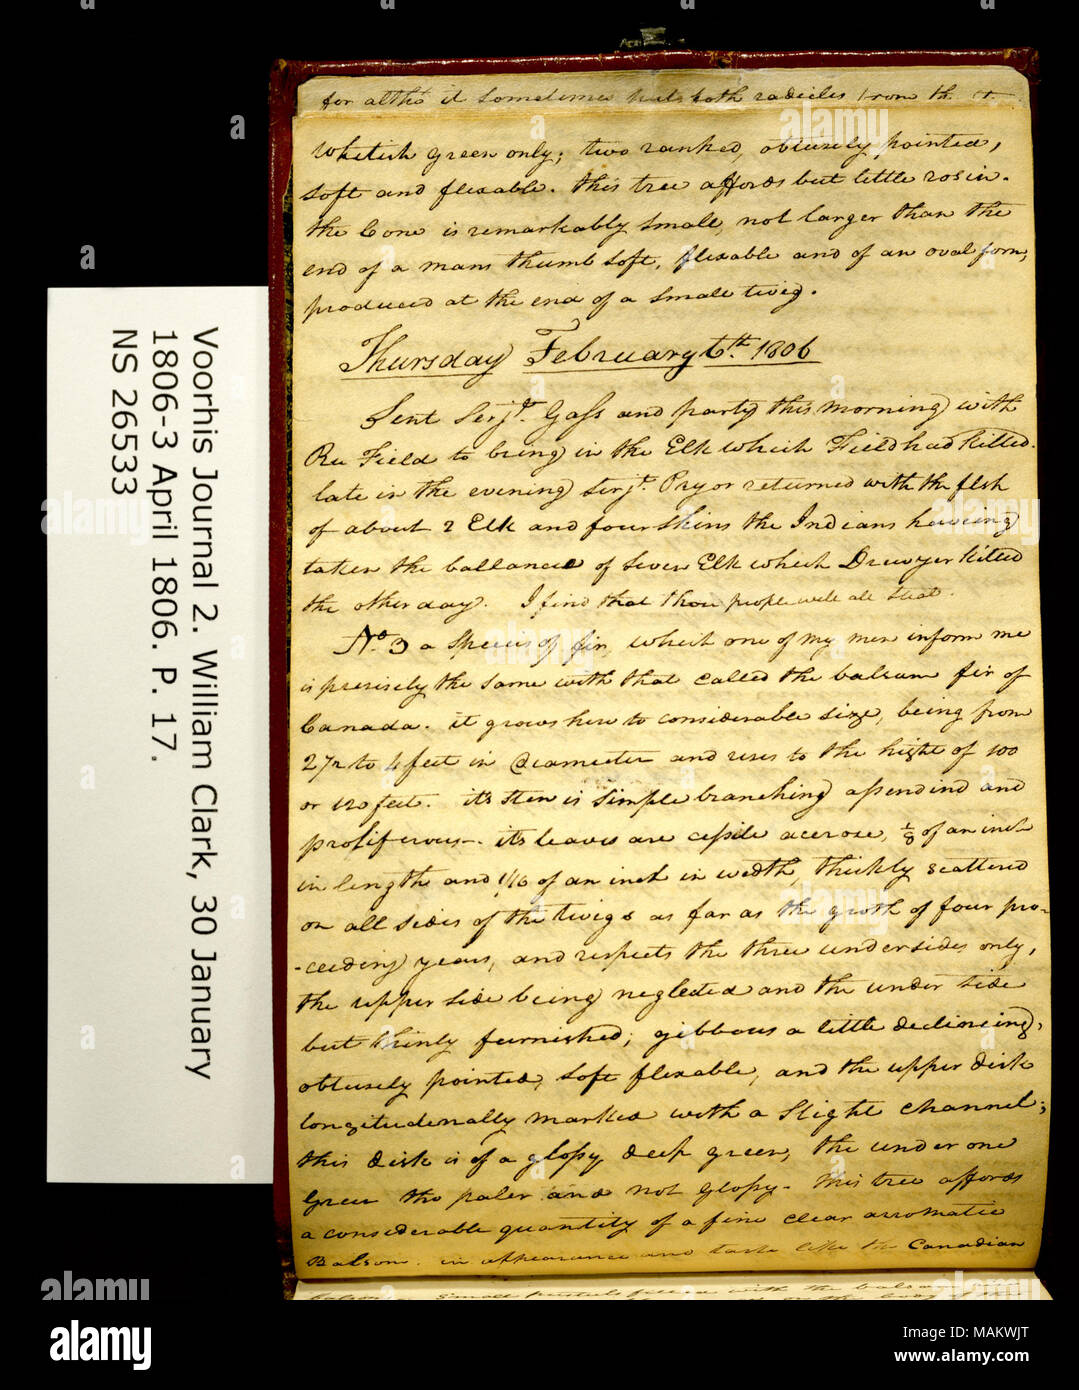 for altho it sometimes puts forth radicles from the
whitish green only; two ranked, obtusely pointed,
soft and flexable. this tree affords but little rosin.
the Cone is remarkably small, not larger than the
end of a mans thumb soft, flexable and of an oval form,
produced at the end of a small twig.
Thursday February 6th. 1806
Sent Serjt. Gass and party this morning with
Ru Field to bring in the Elk which Field had killed.
late in the evening Serjt. Pryor returned with the flesh
of about 2 Elk and four skins the Indians haveing
taken the ballance of Seven Elk which Drewyer killed
the other day. I find that those people will all Steal.
No. 3 a Species of fir, which one of my men inform me
is precisely the same with that called the balsam fir of
Canada. it grows here to considerable size, being from
2½ to 4 feet in diameeter and rises to the hight of 100
or 120 feet. it's Stem is Simple branching assending and
proliferous—. it's leaves are cessile acerose, ⅛ of an inch
in length and 1/16 of an inch in width, thickly scattered
on all sides of the twigs as far as the groth of four pro-
-ceeding years, and respects the three undersides only,
the upper side being neglected and the under side
but thinly furnished; gibbous a little declineing,
obtusely pointed, Soft flexable, and the upper disk
longitudenally marked with a Slight channel;
this disk is of a glossy deep green, the under one
green tho paler and not glossy. This tree affords
a considerable quantity of a fine clear arromatic
Balsom in appearance and taste like the Canadian
Small pustuls filled with the balsam
Voorhis Journal 2. William Clark, 30 January
1806-3 April 1806. P. 17.
NS 26533
alamy
Image ID: MAKWJT
www.alamy.com